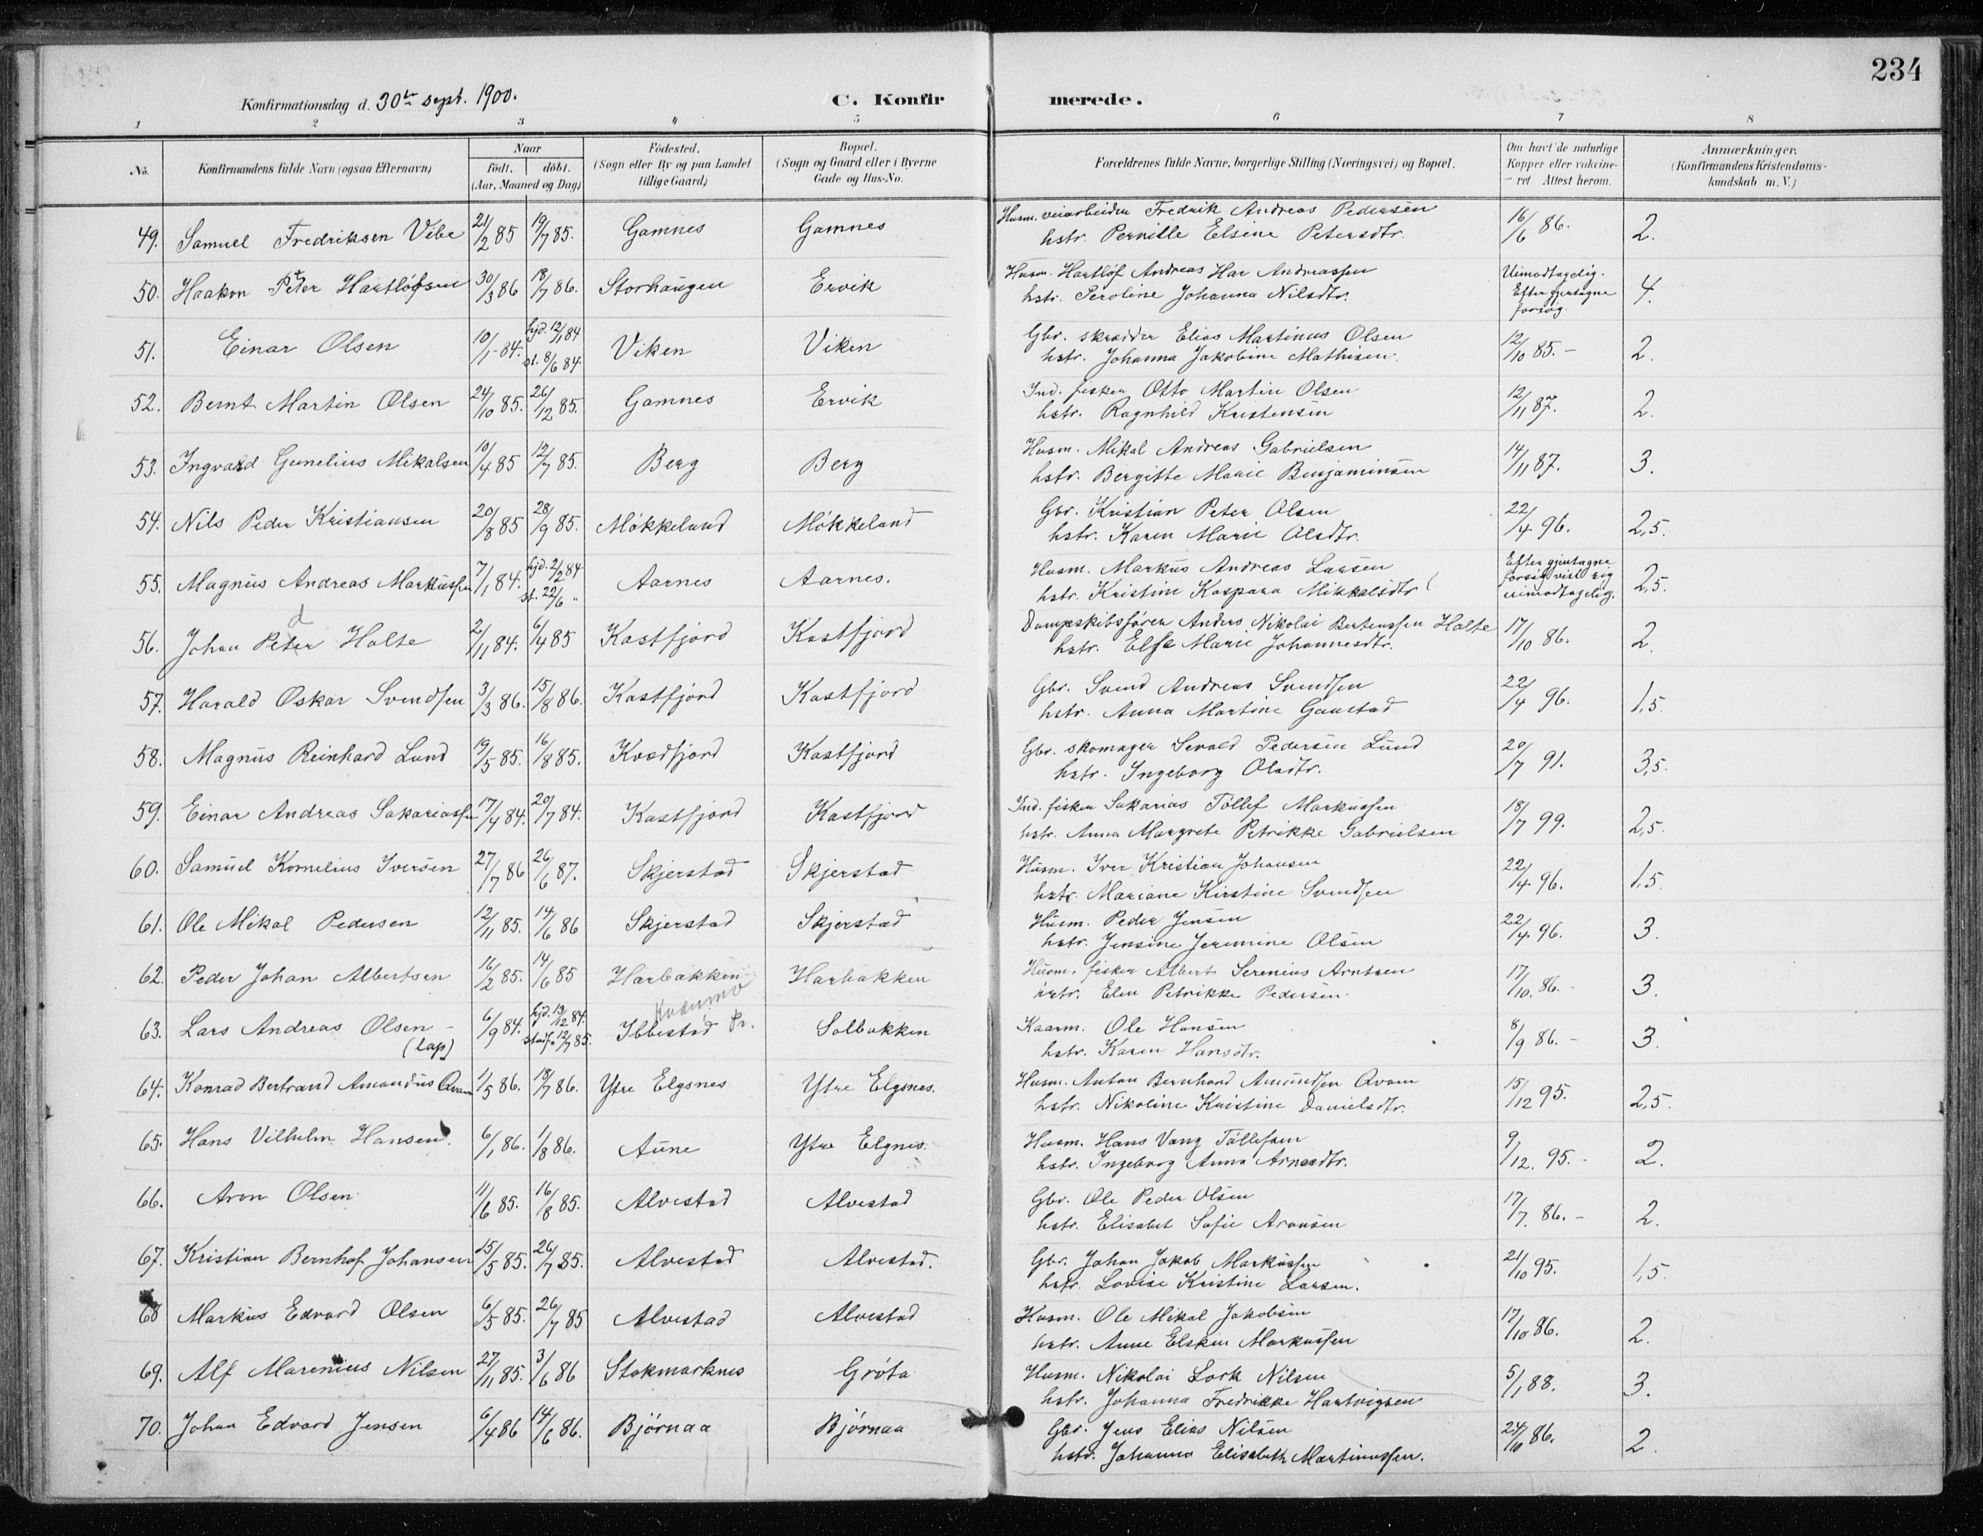 234
Konfirmationsdag d. 30te sept. 1900.
C. Konfirmerede.
1 2 3 4 5 6 7 8
No.
Konfirmandens fulde Navn (ogsaa Efternavn)
Naar
født. døbt.
(Aar, Maaned og Dag)
Fødested.
(Sogn eller By og paa Landet
tillige Gaard)
Bopæl.
(Sogn og Gaard eller i Byerne
Gade og Hus-No.
Forældrenes fulde Navne, borgerlige Stilling (Næringsvei) og Bopæl.
Om havt de naturlige
Kopper eller vaccine-
ret Attest herom.
Anmærkninger.
(Konfirmandens Kristendoms-
kundskab m. V.)
49. Samuel Fredriksen Vibe 21/2 85 19/7 85. Gamnes Gamnes Husm. veiarbeider Fredrik Andreas Pedersen 16/6 86. 2.
hstr. Pernille Elsine Petersdtr.
50. Haakon Peter Hartløfsen 30/3 86 18/7 86. Storhaugen Ervik Husm. Hartløf Andreas Har Andreassen Uimodtagelig. 4.
hstr. Peroline Johanna Nilsdtr. Efter gjentagne
forsøg.
51. Einar Olsen 10/1 84. hjd. 12/1 84 Viken Viken Gbr. skrædder Elias Martinus Olsen 12/10 85. - 2.
st. 8/6 84. hstr. Johanna Jakobine Mathisen.
52. Bernt Martin Olsen 24/10 85. 26/12 85. Gamnes Ervik Ind. fisker Otto Martin Olsen 12/11 87. 2.
hstr. Ragnhild Kristensen
53. Ingvald Gunelius Mikalsen 10/4 85 12/7 85. Berg Berg Husm. Mikal Andreas Gabrielsen 14/11 87. 3.
hstr. Bergitte Marie Benjaminsen
54. Nils Peder Kristiansen 20/8 85 28/9 85. Møkkeland Møkkeland Gbr. Kristian Peter Olsen 22/4 96. 2,5.
hstr. Karen Marie Olsdtr.
55. Magnus Andreas Markussen 7/1 84. hjd. 2/2 84 Aarnes Aarnes. Husm. Markus Andreas Larsen Efter gjentagne 2,5.
st. 22/6 " hstr. Kristine Kaspara Mikkalsdtr. forsøg vist sig
uimodtagelig.
56. Johan Peter Holte 2/11 84. 6/4 85 Kastfjord Kastfjord Dampskibsfører Anders Nikolai Bertenssen Holte 17/10 86. 2.
d
hstr. Else Marie Johannesdtr.
57. Harald Oskar Svendsen 3/3 86. 15/8 86. Kastfjord Kastfjord Gbr. Svend Andreas Svendsen 22/4 96. 1,5.
hstr. Anna Martine Gaustad
58. Magnus Reinhard Lund 19/5 85. 16/8 85. Kvædfjord Kastfjord Gbr. skomager Sevald Pedersen Lund 20/7 91. 3,5.
hstr. Ingeborg Olsdtr.
59. Einar Andreas Sakariassen 17/4 84. 20/7 84. Kastfjord Kastfjord Ind. fisker Sakarias Tollef Markussen 18/7 99. 2,5.
hstr. Anna Margrete Petrikke Gabrielsen
60. Samuel Kornelius Iversen 27/7 86 26/6 87. Skjerstad Skjerstad Husm. Iver Kristian Johansen 22/4 96. 1,5.
hstr. Mariane Kirstine Svendsen
61. Ole Mikal Pedersen 12/11 85. 14/6 86 Skjerstad Skjerstad Husm. Peder Jensen 22/4 96. 3.
hstr. Jensine Jeremine Olsen
62. Peder Johan Albertsen 16/2 85. 14/6 85 Harbakken Harbakken Husm. fisker Albert Serenius Arntsen 17/10. 86. - 3.
hstr. Elen Petrikke Pedersen.
63. Lars Andreas Olsen - 6/9 84. hjd. 19/12 84. Ibbestad Pr. Solbakken Kaarm. Ole Hansen 8/9 86. - 3.
(Lap) stadf. 12/7 85. hstr. Karen Hansdtr.
64. Konrad Bertrand Amandus Qvam 1/5 86. 18/7 86. Ytre Elgsnes Ytre Elgsnes. Husm. Anton Bernhard Amundsen Qvam 15/12 95. 2,5.
hstr. Nikoline Kristine Danielsdtr.
65. Hans Vilhelm Hansen. 6/1 86. 1/8 86. Aune Ytre Elgnes. Husm. Hans Vang Tøllefsen 9/12. 95. - 2.
hstr. Ingeborg Anna Arnesdtr.
66. Aron Olsen 11/6 85. 16/8 85. Alvestad Alvestad Gbr. Ole Peder Olsen 17/7. 86. - 2.
hstr. Elisabet Sofie Aronsen
67. Kristian Bernhof Johansen 15/5 85. 26/7 85. Alvestad Alvestad. Gbr. Johan Jakob Markussen 21/10 95. 1,5.
hstr. Lovise Kristine Larsen.
68 Markus Edvard Olsen 6/5 85. 26/7 85 Alvestad Alvestad Husm. Ole Mikal Jakobsen 17/10 86. 2.
hstr. Anne Elsken Markussen
69. Alf Marenius Nilsen 27/11 85. 3/6 86 Stokmarknes Grøta Husm. Nikolai Lork Nilsen 5/1 88. 3.
hstr. Johanna Fredrikke Hartvigsen
70. Johan Edvard Jensen 6/4 86 14/6 86. Bjørnaa Bjørnaa Gbr. Jens Elias Nilsen 24/10 86. 2.
hstr. Johanna Elisabeth Martinussen.